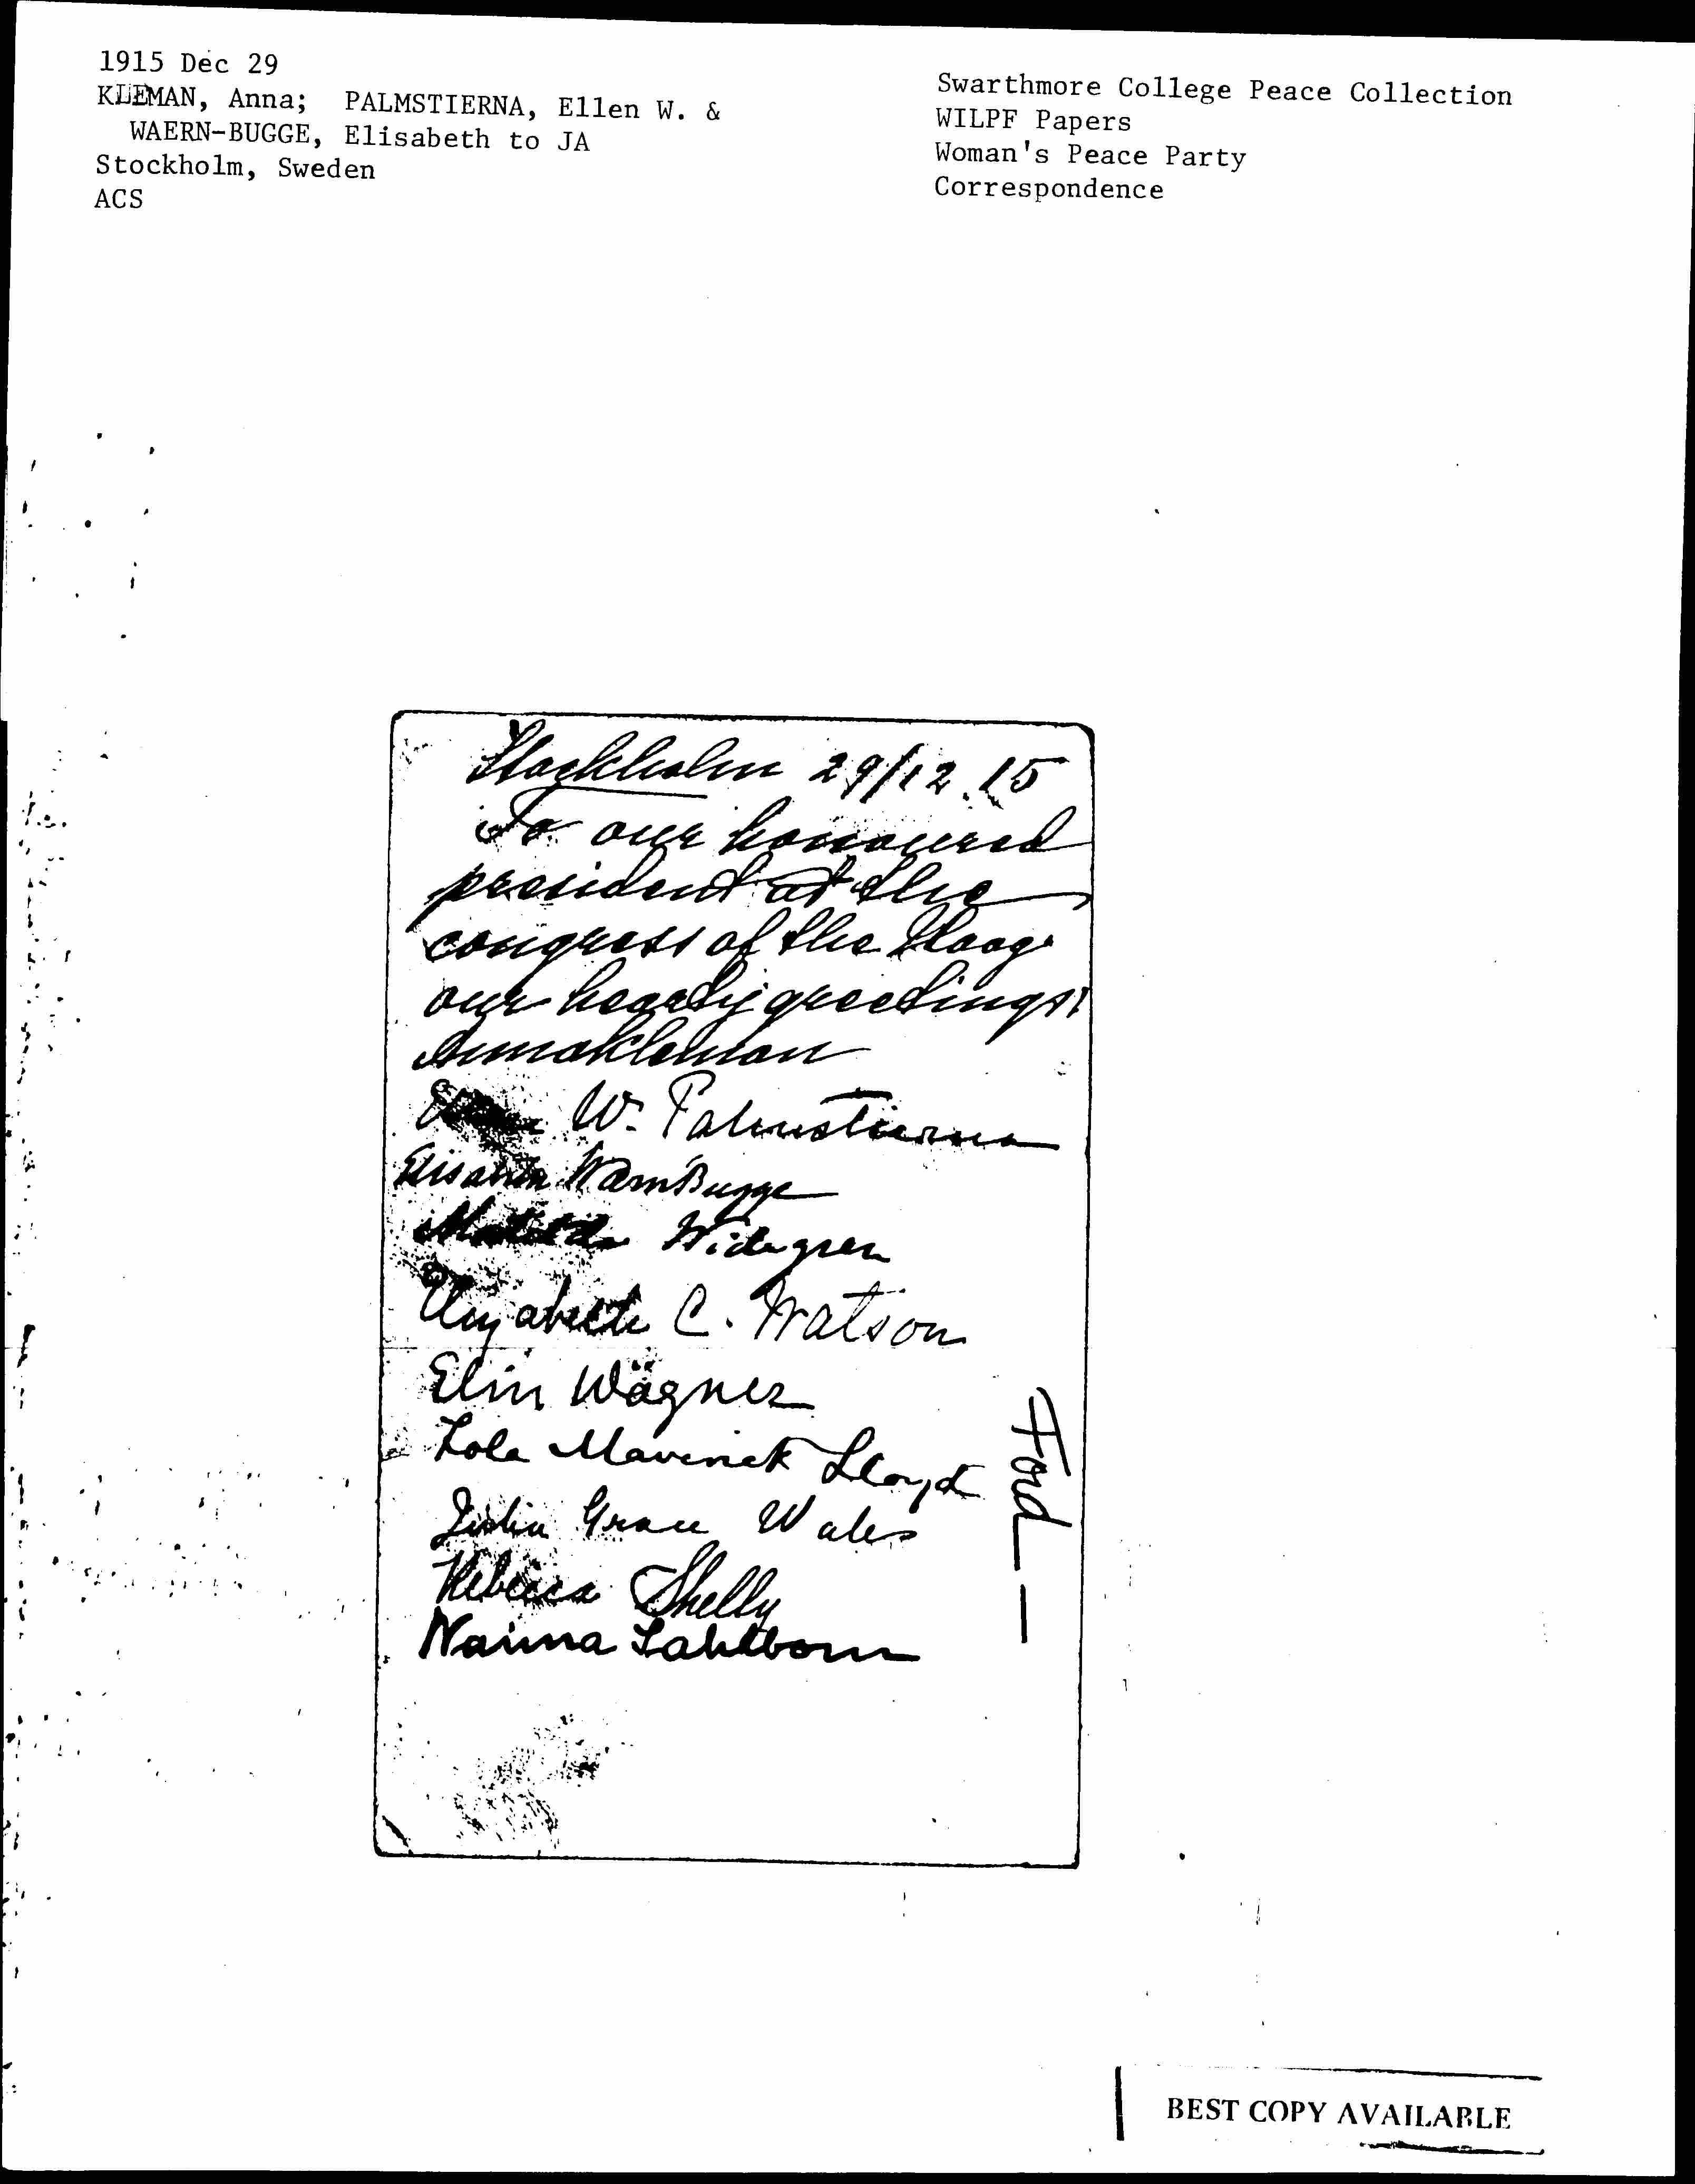 1915 Dec 29
KLEMAN, Anna; PALMSTIERNA, Ellen W. &
WAERN-BUGGE, Elisabeth to JA
Stockholm, Sweden
ACS
Swarthmore College Peace Collection
WILPF Papers
Woman's Peace Party
Correspondence
Stockholm 29/12.15
To our honoured
president at the
congress of the Haag
our hearty greetings!
Anna Kleman
Ellen W. Palmstierna
Elisabeth WærnBugge
Matilda Widegren
Elizabeth C. Watson
Elin Wägner
Lola Maverick Lloyd
Julia Grace Wales
Rebecca Shelly
Naima Sahlbom
Ford —
BEST COPY AVAILABLE